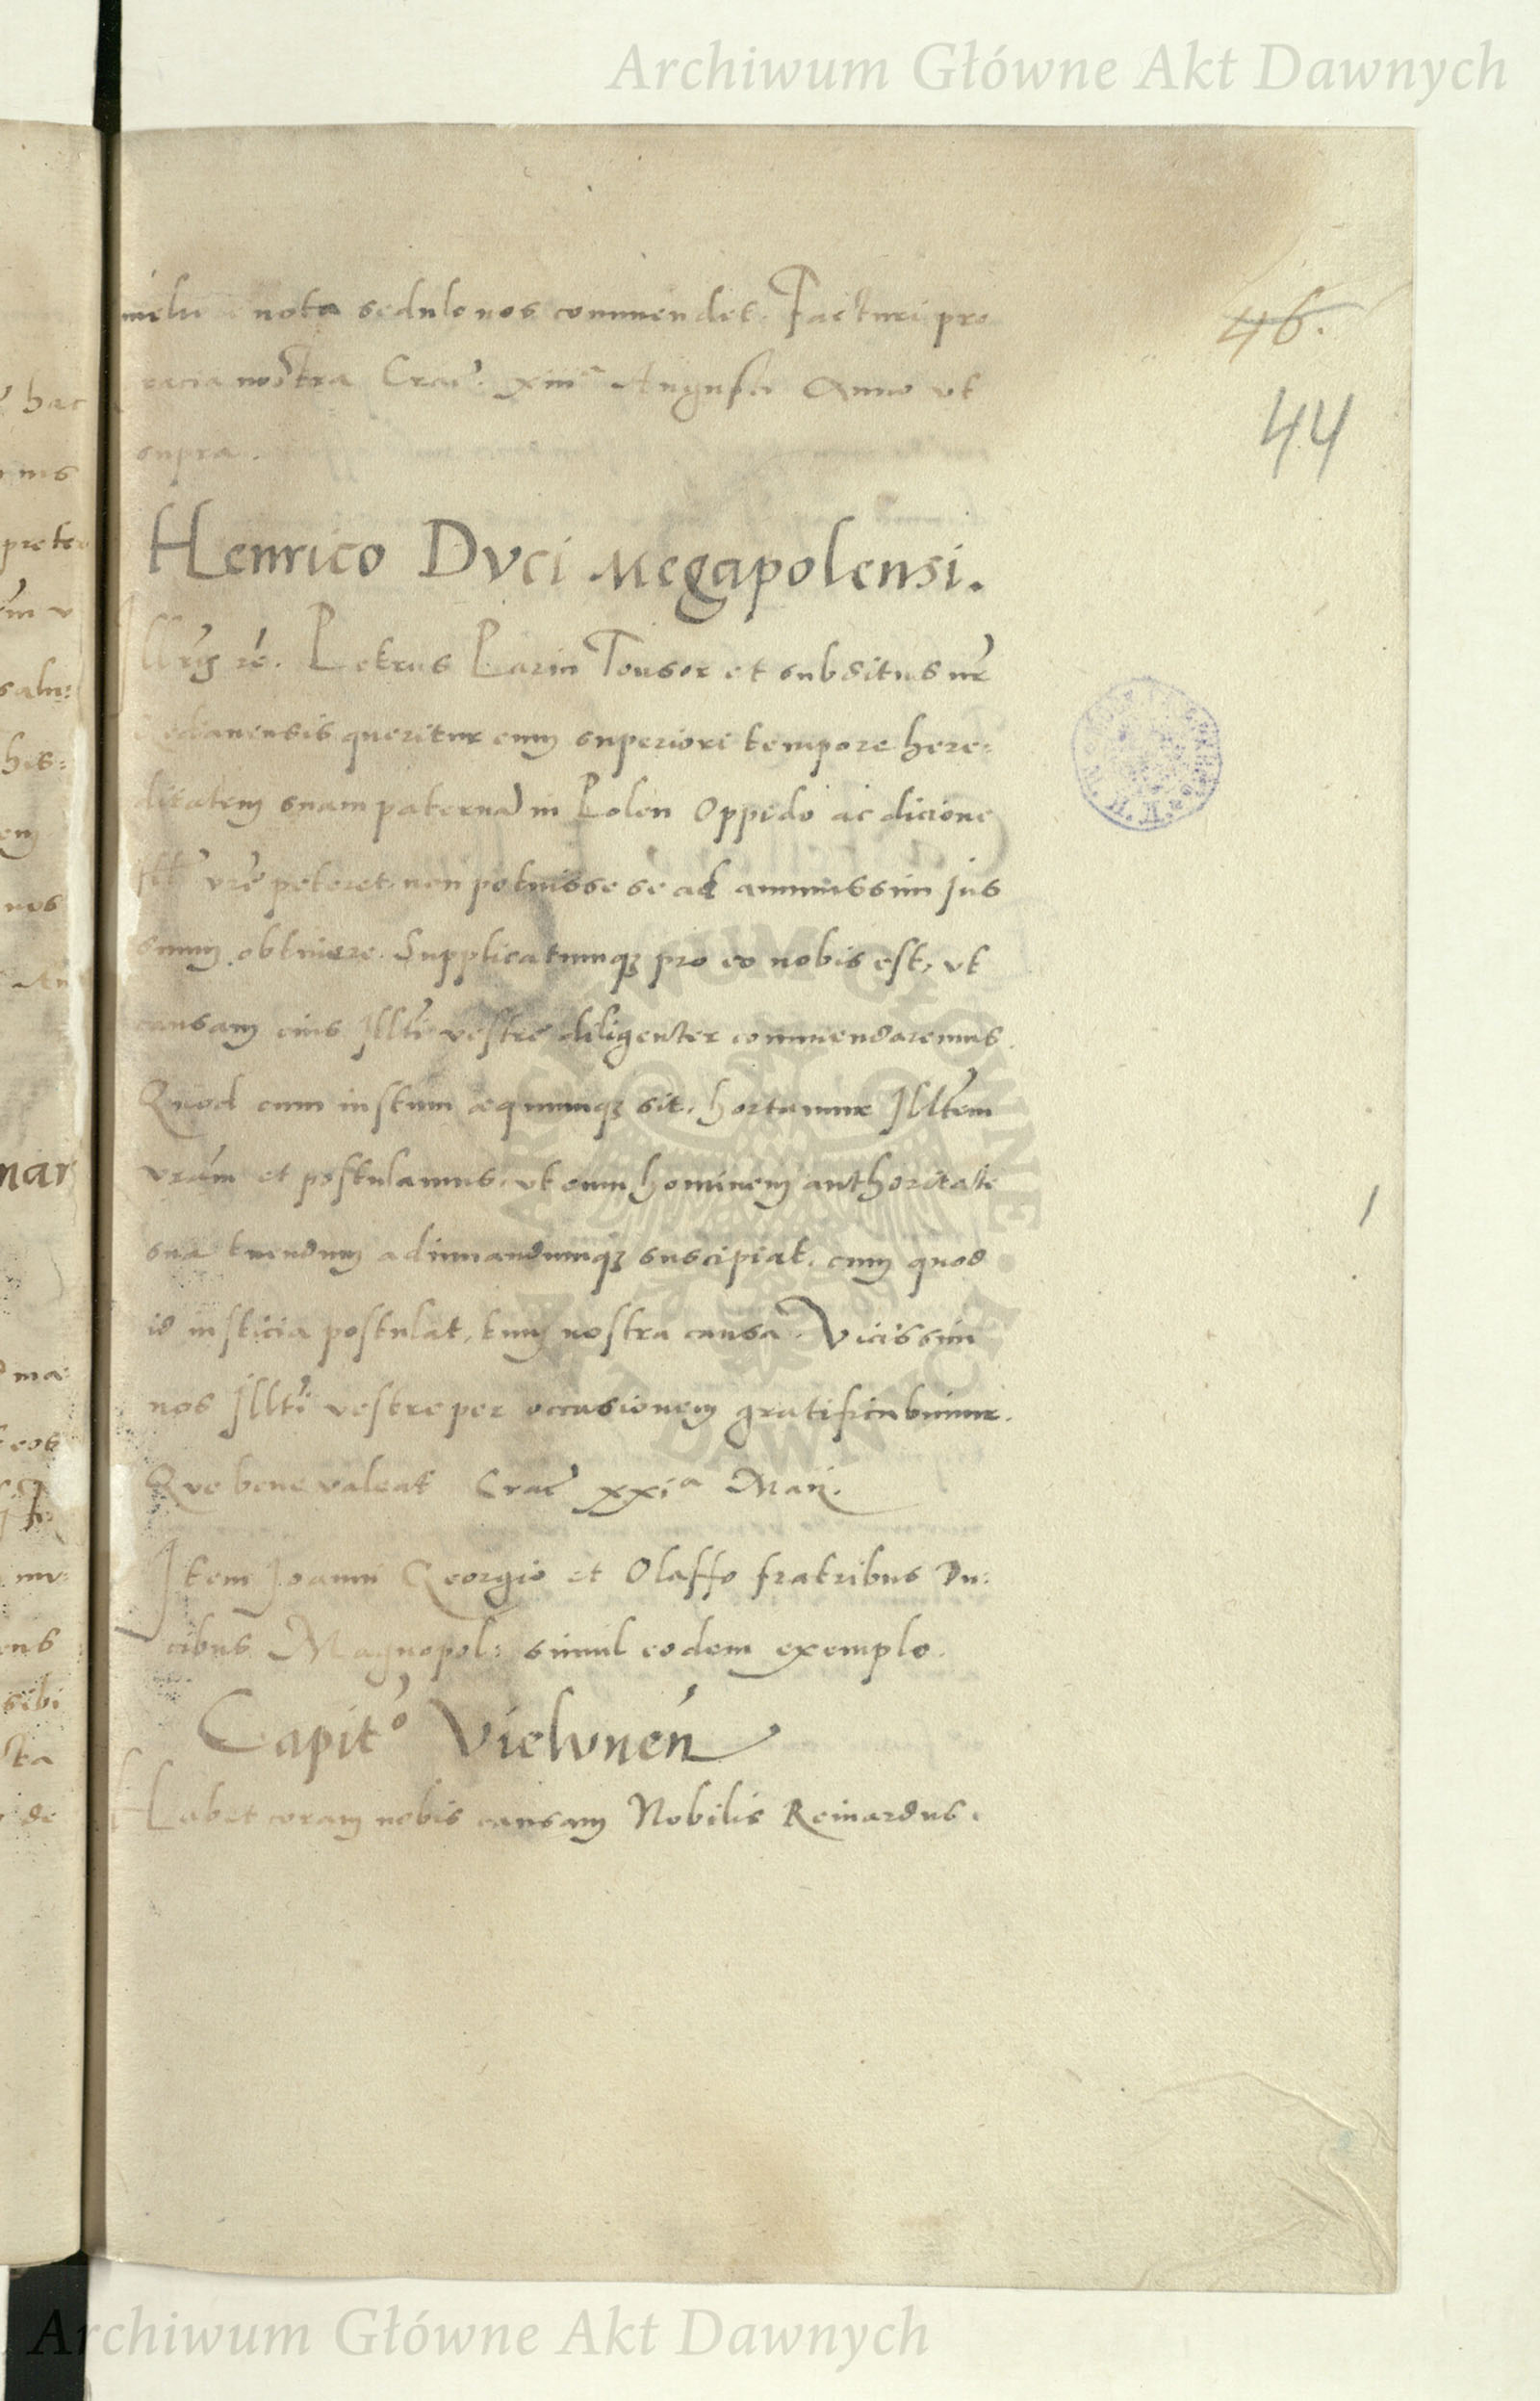 Archiwum Główne Akt Dawnych
46.
44
nota sedulo nos commendet. Facturi pro
nostra Crac. xiiiᵃ Augusti Anno vt
supra.
Henrico Dvci Megapolensi.
Petrus Parin Tonsor et subditus nr̃
queritur cum superiori tempore here=
ditatem suam paternā in Polen Oppido ac dicione
vrē peteret, non potuisse se ad amussim jus
suum obtinere. Supplicatumqȝ pro eo nobis est, vt
causam eius Jllti vestre diligenter commendaremus.
Quod cum iustum æquumqȝ sit, hortamur Jlltem
vrām et postulamus, vt eum hominem authoritate
sua tuendum adiuuandumqȝ suscipiat, cum quod
id iusticia postulat, tum nostra causa. Vicissim
nos Jllti vestre per occasionem gratificabimur.
Que bene valeat Crac̃ xxiᵃ Maii.
Item Joanni Georgio et Olaffo fratribus Du:
cibus Magnopol: simul eodem exemplo.
Capitº Vielvnen̄
Habet coram nobis causam Nobilis Reinardus.
Archiwum Główne Akt Dawnych